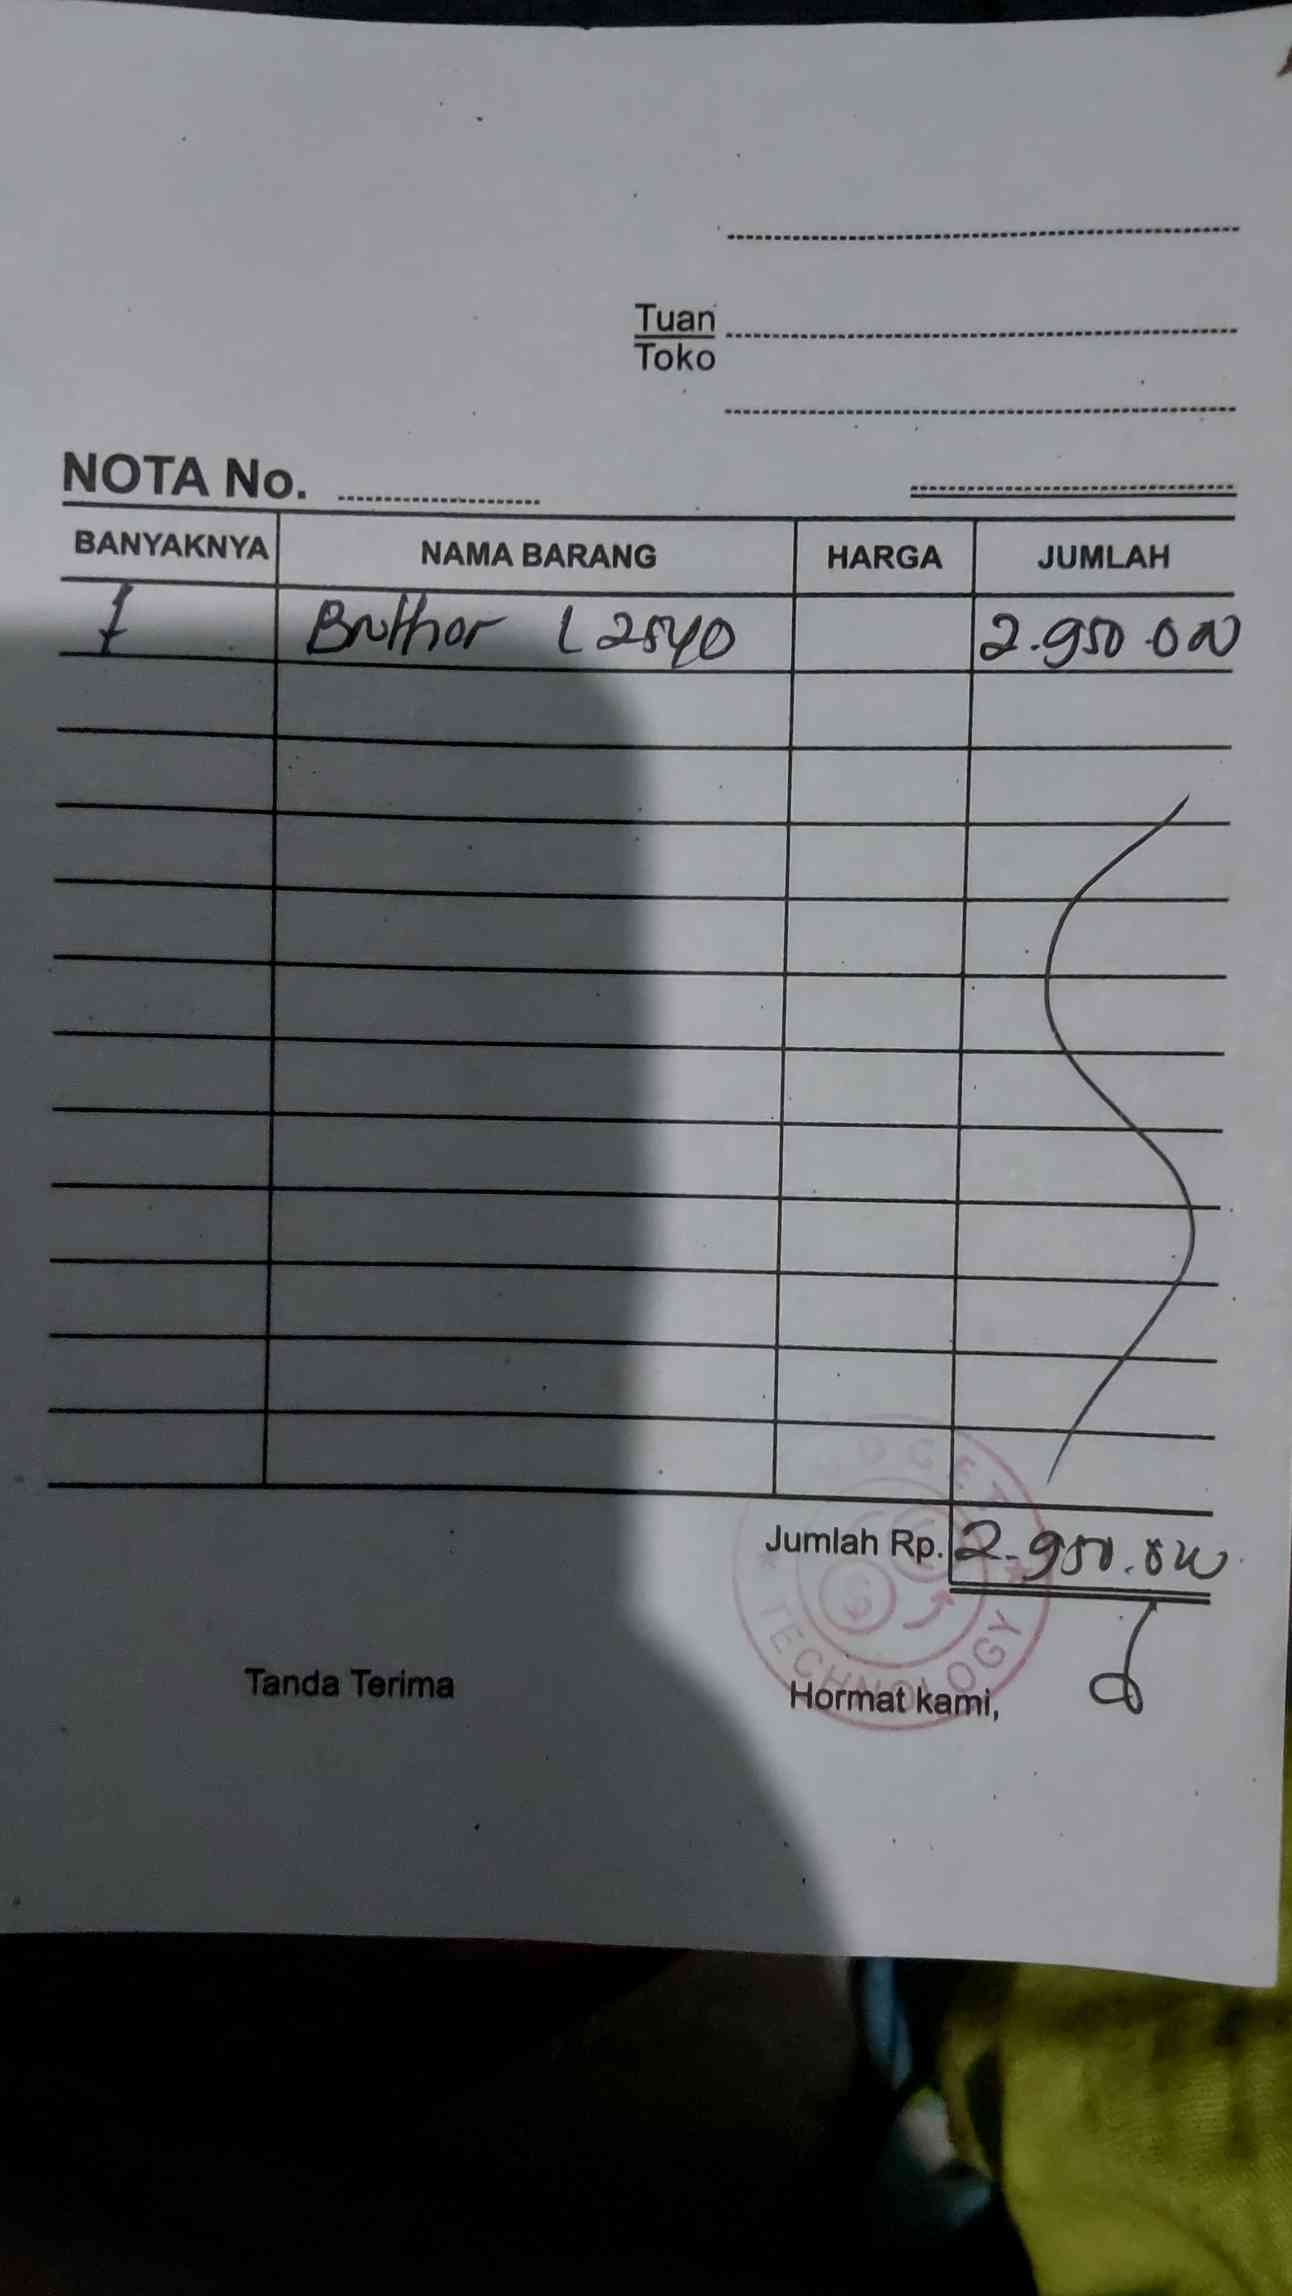 Tuan
Toko
NOTA No.
BANYAKNYA NAMA BARANG HARGA JUMLAH
1 Brother L2540 2.950.000
Jumlah Rp. 2.950.000
TECHNOLOGY
Tanda Terima Hormat kami,